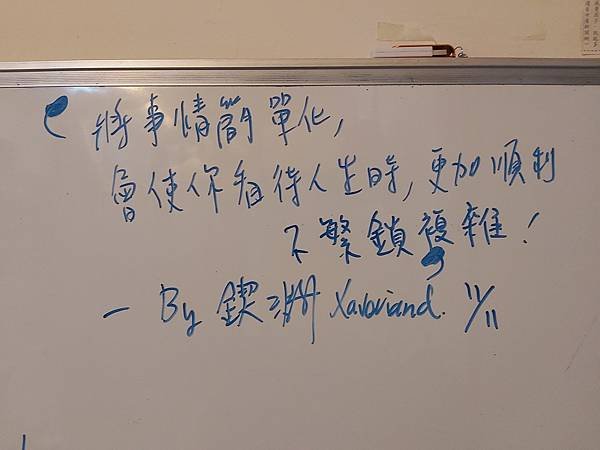 將事情簡單化,
會使你看待人生時,更加順利
不繁鎖複雜!
- By 鍥洲 Xavoriand. 11/11